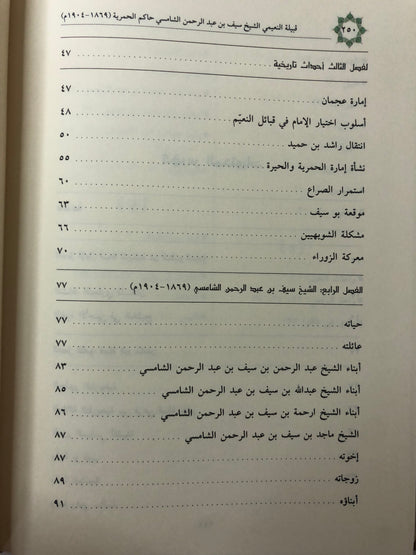 ٢٥٠ قبيلة النعيمي الشيخ سيف بن عبد الرحمن الشامسي حاكم الحمرية (١٨٦٩-١٩٠٤م)
لفصل الثالث أحداث تاريخية ٤٧
إمارة عجمان ٤٧
أسلوب اختيار الإمام في قبائل النعيّم ٤٨
انتقال راشد بن حميد ٥٠
نشأة إمارة الحمرية والحيرة ٥٥
استمرار الصراع ٦٠
موقعة بو سيف ٦٣
مشكلة الشويهيين ٦٦
معركة الزوراء ٧٠
الفصل الرابع: الشيخ سيف بن عبد الرحمن الشامسي (١٨٦٩-١٩٠٤م) ٧٧
حياته ٧٧
عائلته ٧٧
أبناء الشيخ عبد الرحمن بن سيف بن عبد الرحمن الشامسي ٨٣
أبناء الشيخ عبدالله بن سيف بن عبد الرحمن الشامسي ٨٥
أبناء الشيخ ارحمة بن سيف بن عبد الرحمن الشامسي ٨٦
الشيخ ماجد بن سيف بن عبد الرحمن الشامسي ٨٧
إخوته ٨٧
زوجاته ٨٩
أبناؤه ٩١